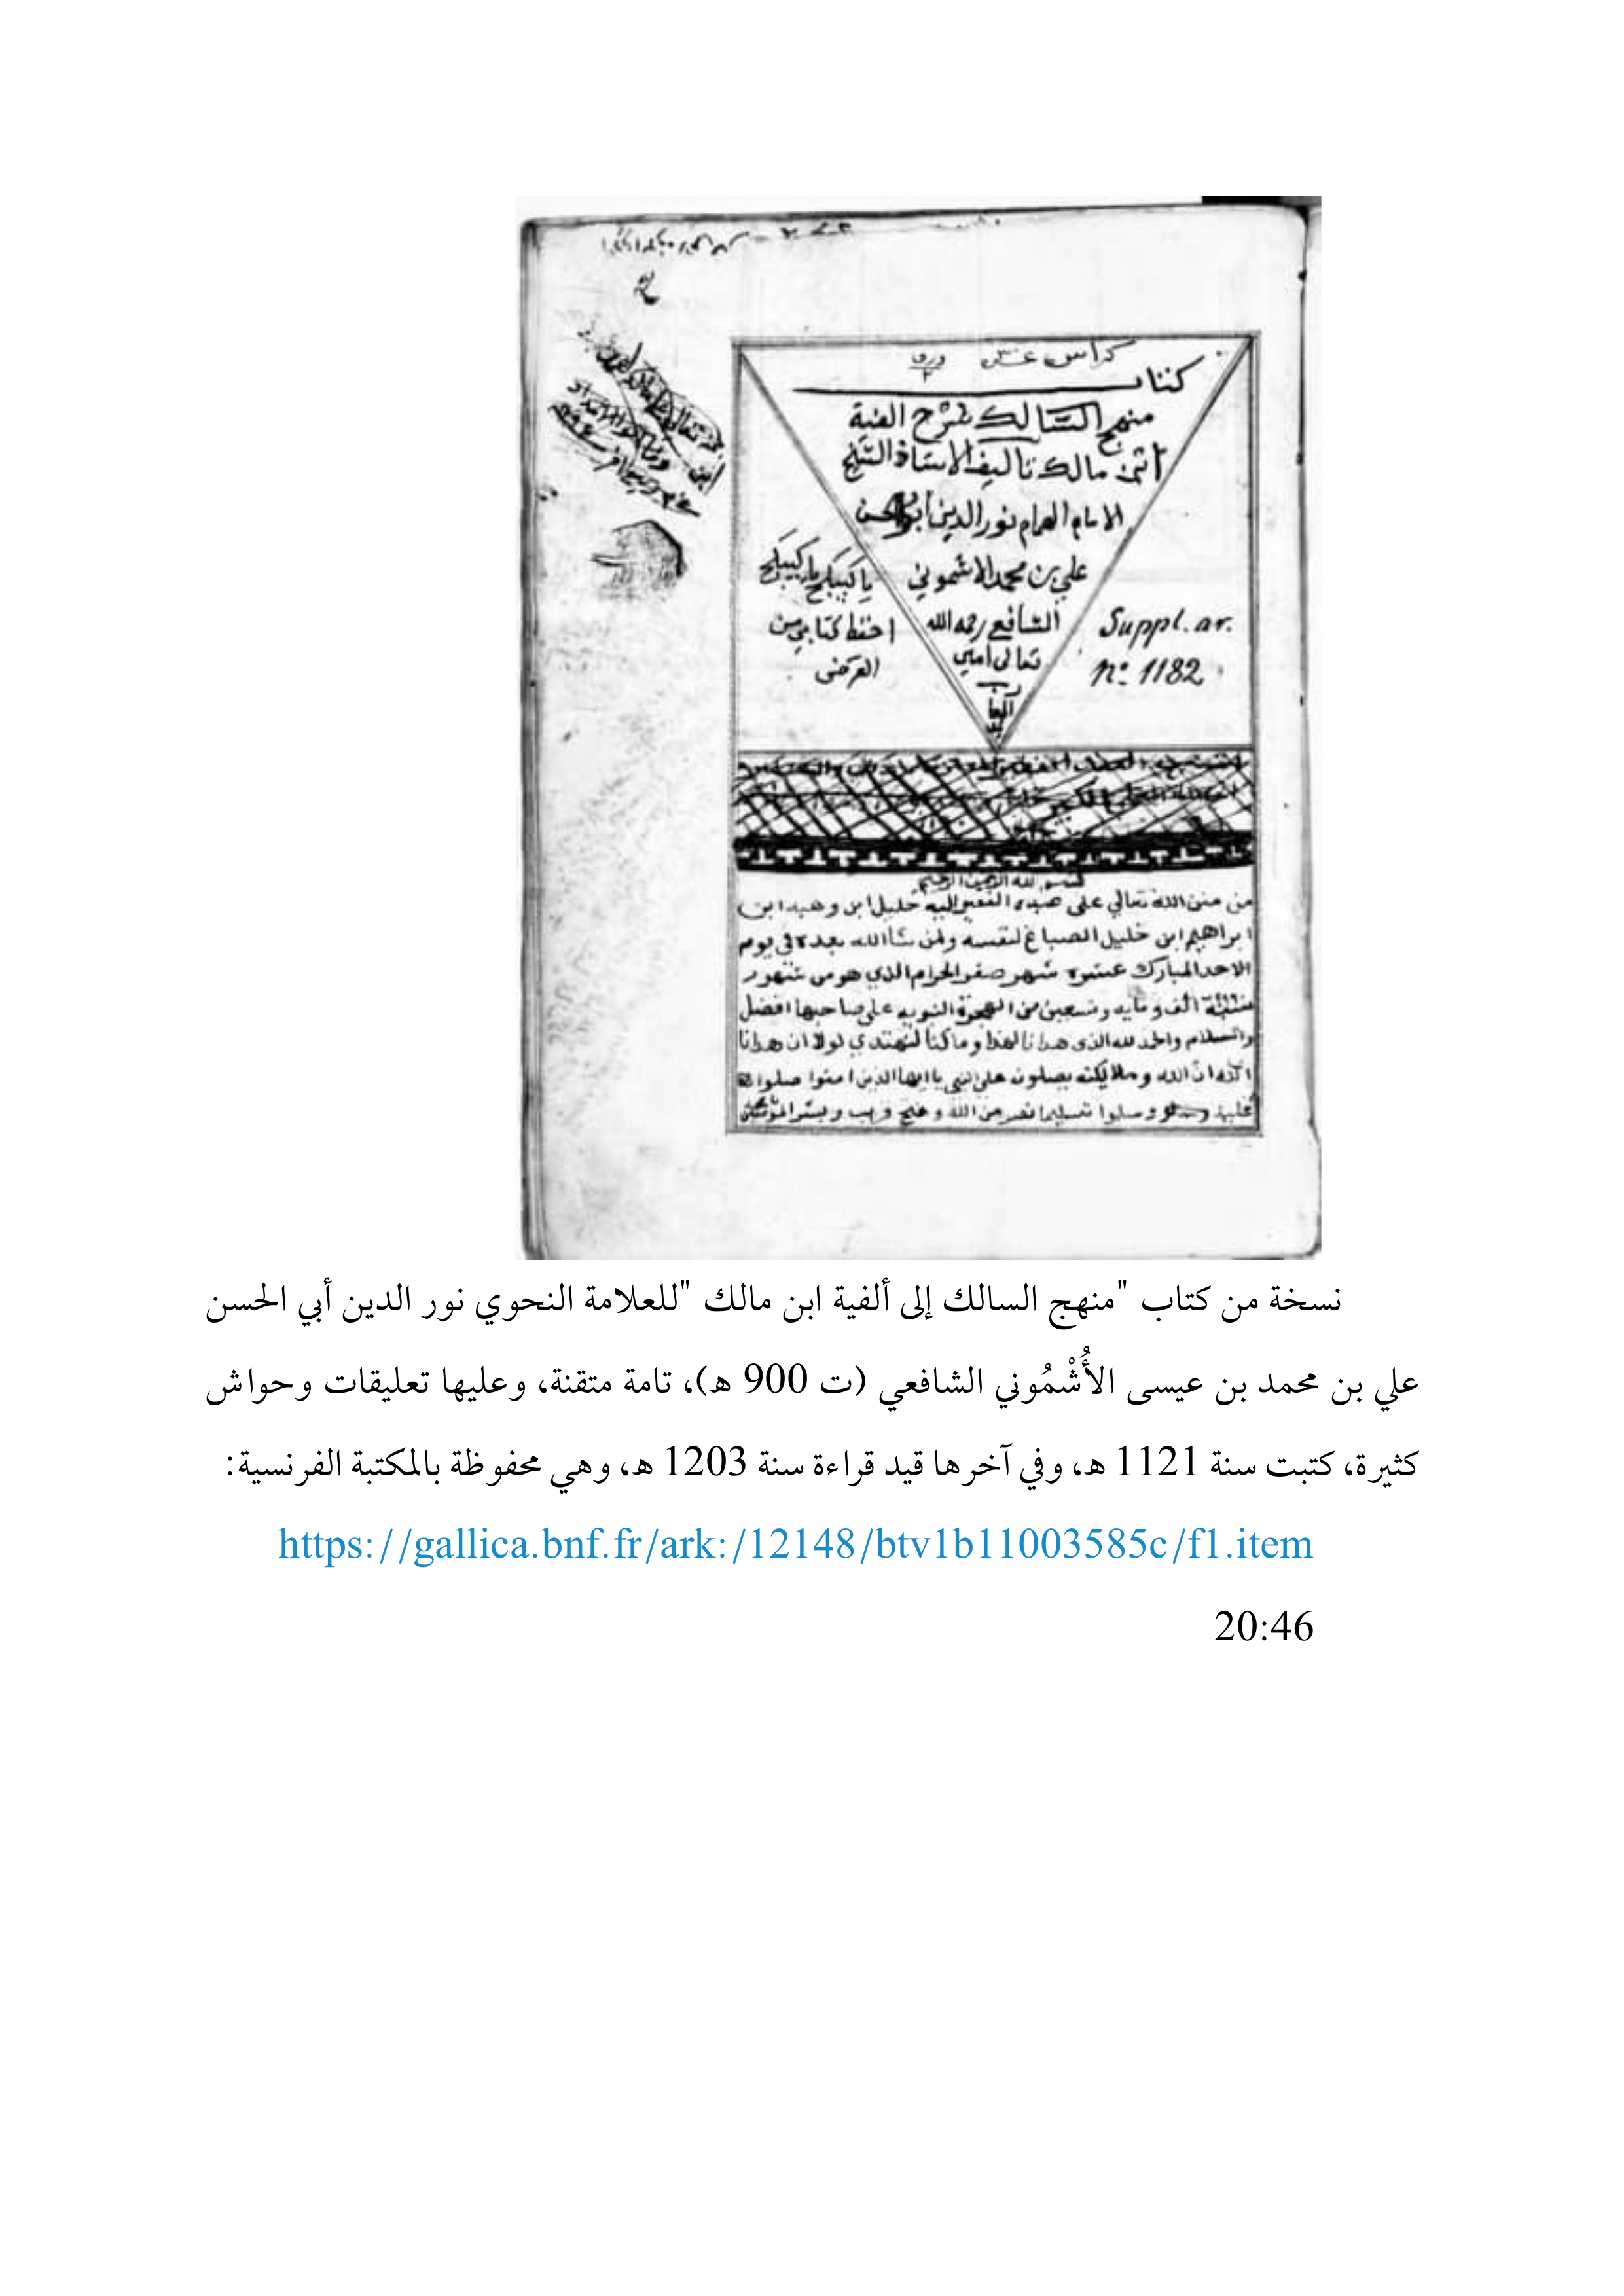 كراس عشر ورق
كتاب
منهج السالك بشرح الفية
ابن مالك تاليف الاستاذ الشيخ
الامام الهمام نور الدين ابو الحسن
علي بن محمد الاشموني
الشافعي رحمه الله
تعالى امين
يا كبيكج يا كبيكج
احفظ كتابي من
العرضى
Suppl. ar.
no. 1182
بسم الله الرحمن الرحيم
من منن الله تعالي على عبده الفقير اليه خليل ابن وهبه ابن
ابراهيم ابن خليل الصباغ لنفسه ولمن شا الله بعده في يوم
الاحد المبارك عشره شهر صفر الحرام الذي هو من شهور
سنة الف ومايه وتسعين من الهجرة النبويه على صاحبها افضل
والسلام والحمد لله الذى هدانا لهذا وما كنا لنهتدي لولا ان هدانا
الله ان الله وملايكته يصلون على النبي يا ايها الذين امنوا صلوا
عليه وسلموا تسليما نصر من الله وفتح قريب وبشر المؤمنين
نسخة من كتاب "منهج السالك إلى ألفية ابن مالك "للعلامة النحوي نور الدين أبي الحسن
علي بن محمد بن عيسى الأُشْمُوني الشافعي (ت 900 هـ)، تامة متقنة، وعليها تعليقات وحواش
كثيرة، كتبت سنة 1121 هـ، وفي آخرها قيد قراءة سنة 1203 هـ، وهي محفوظة بالمكتبة الفرنسية:
https://gallica.bnf.fr/ark:/12148/btv1b11003585c/f1.item
20:46